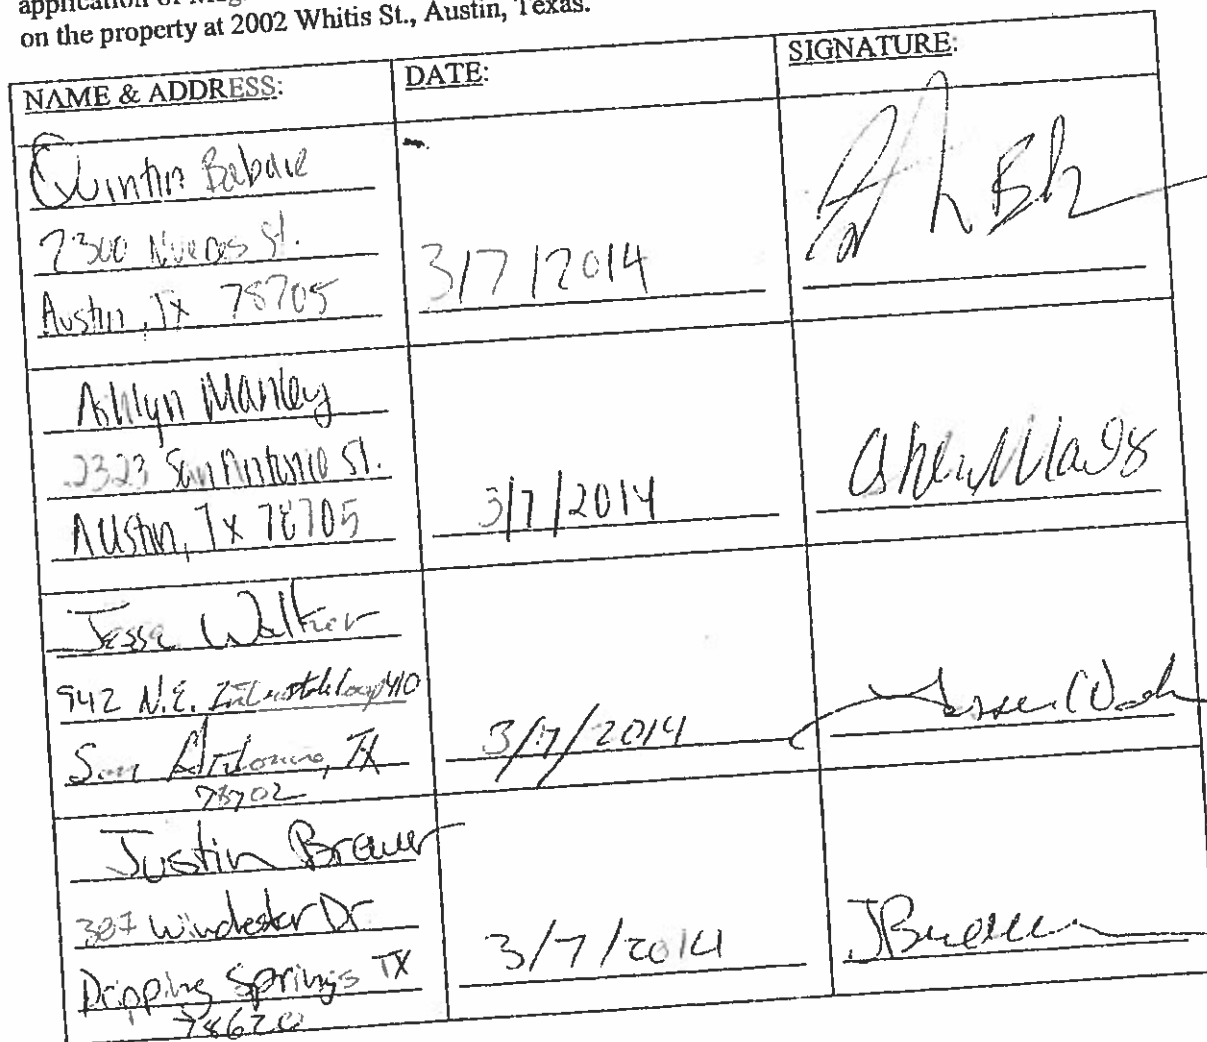 application of
on the property at 2002 Whitis St., Austin, Texas.
NAME & ADDRESS: DATE: SIGNATURE:
Quintin Babaie
2300 Nueces St.
Austin, Tx 78705 3/7/2014
Ashlyn Manley
2323 San Antonio St.
Austin, Tx 78705 3/7/2014
Jesse Walker
942 N.E. Interstate Loop 410
San Antonio, TX 3/7/2014
78702
Justin Brewer
387 Winchester Dr
Dripping Springs TX 3/7/2014 JBrewer
78620